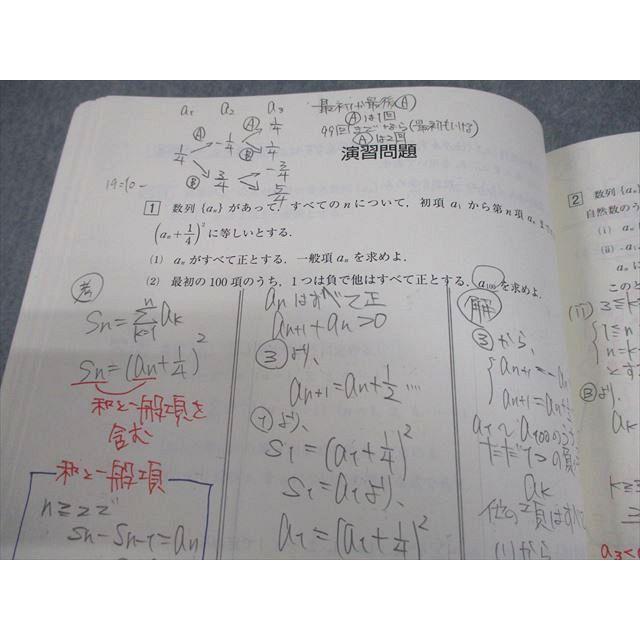 a₁ a₂ a₃
最初か最後Ⓐ
Ⓐは1回
99回まで
Ⓐは2回
演習問題
1 数列{aₙ}があって，すべてのnについて，初項a₁から第n項aₙま
(aₙ+1/4)²に等しいとする．
(1) aₙがすべて正とする．一般項aₙを求めよ．
(2) 最初の100項のうち，1つは負で他はすべて正とする．a₁₀₀を求めよ．
考
Sₙ=Σₖ₌₁ⁿ aₖ
Sₙ=(aₙ+1/4)²
和と一般項を
含む
和と一般項
n≧2で
Sₙ-Sₙ₋₁=aₙ
aₙはすべて正
aₙ₊₁+aₙ>0
③より、
aₙ₊₁=aₙ+1/2 …
①より、
S₁=(a₁+1/4)²
S₁=a₁より、
a₁=(a₁+1/4)²
解
③から、
aₙ₊₁=-aₙ
aₙ₊₁=aₙ+1/2
a₁～a₁₀₀のうち
ただ1つの負
aₖ
他の項はすべて
(1)から
2 数列{aₙ
自然数のう
(i) aₙ
(ii) -aₙ
aₙに
このと
(ii) 3≦k≦
1≦n≦
n=k-
とす
③より、
aₖ
k≧3
a₃<